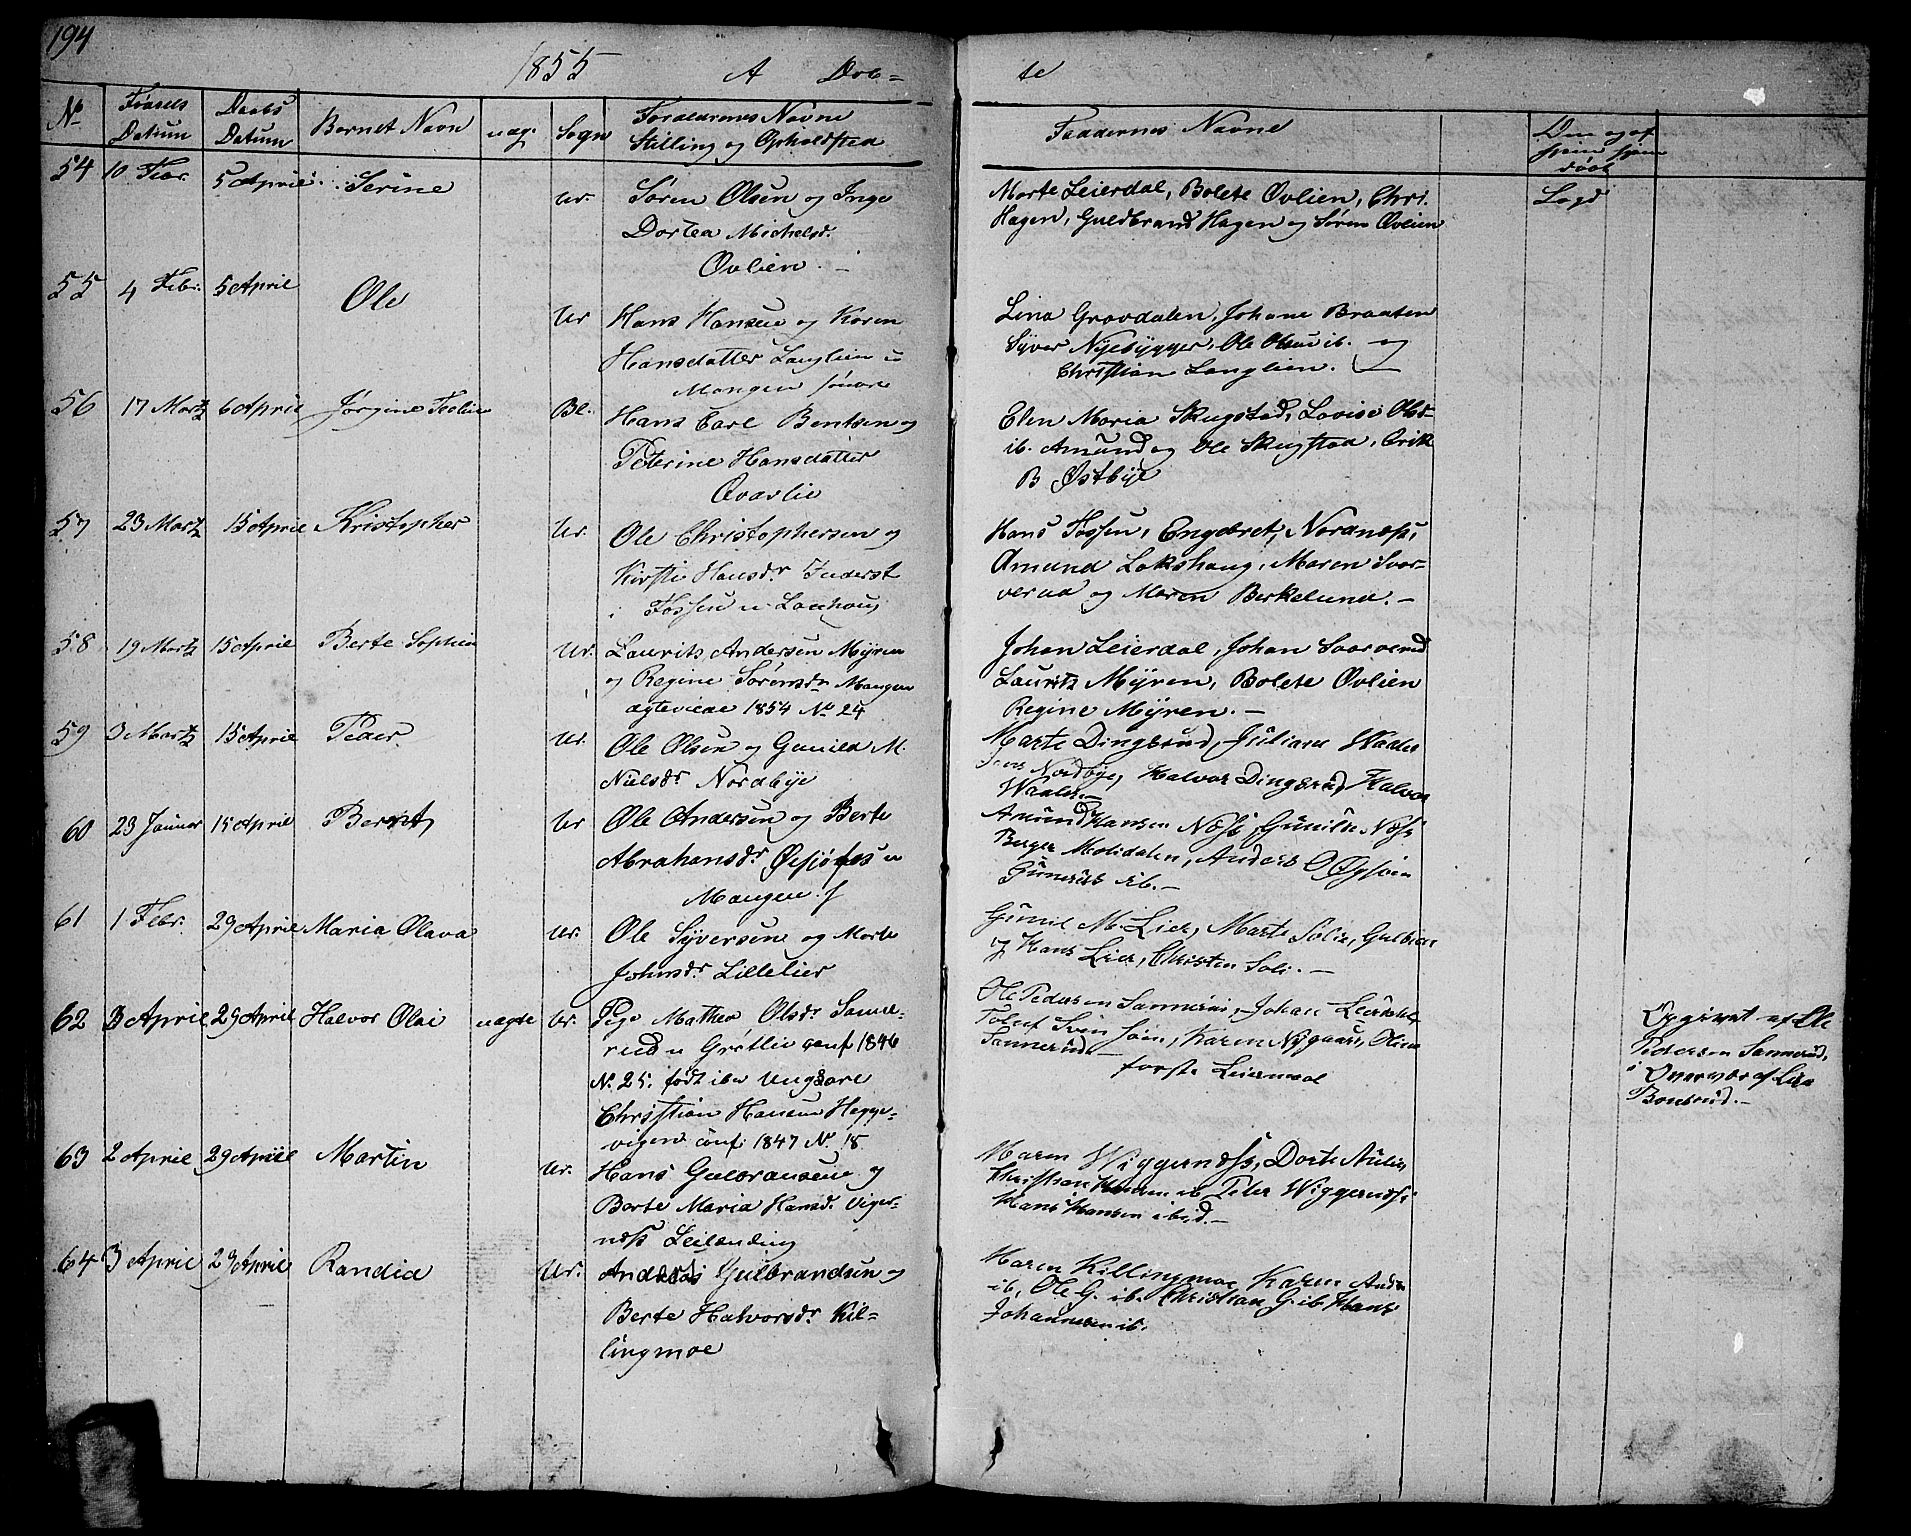 194
1855 A Døb= te
No Fødsels Datum Daabs Datum Barnets Navn uægt. Sogn Foraldrenes Navne Stilling og Opholdsted
Faddernes Navne
54 10 Febr. 5 April Serine Ur. Søren Olsen og Inge
Dortea Michelsd.
Øvlien. –
Marte Leierdal, Bolete Øvlien, Chri.
Hagen, Guldbrand Hagen og Søren Øvlien
55 4 Febr. 5 April Ole Ur Hans Hansen og Karen
Hansdatter Langlien u
Mangen
Lina Gravdalen, Johane Braaten
Syver Nyebygger, Ole Olsen ib. og
Christian Langlien.
56 17 Martz 6 April Jørgine Bl. Hans Carl Bentsen og
Peterine Hansdatter
Elen Maria Skugstad, Lovise Olsd
ib. Amund og Ole Skugstad, Erik
B Østbye
57 23 Martz 15 April Kristopher Ur. Ole Christophersen og
Kirsti Hansdr. Inderst
i Fossen u
Hans Fossen, Engebret
Amund Lakshaug, Maren Svar-
verud og Maren Berkelund. –
58 19 Martz 15 April Berte Sophie Ur. Laurits Andersen Myren
og Regine Sørensdr Mangen
ægteviede 1854 No 24
Johan Leierdal, Johan Svarverud
Laurits Myren, Bolete Øvlien
Regine Myren. –
59 3 Martz 15 April Peder Ur. Ole Olsen og Gunild M.
Nielsdr Nordbye
Marte Dingsrud, Juliane
Jens Nordbye, Halvor Dingsrud, Halvor
60 23 Januar 15 April Bernt Ur Ole Andersen og Berte
Abrahamsdr. u
Mangen
Amund Hansen Næss, Gunild Næss
Berger Molidalen, Anders
ib. –
61 1 Febr. 29 April Maria Olava Ur. Ole Syversen og Marte
Johnsdr. Lillelier
Gunil M. Lier, Marte Solie,
og Hans Lier, Christen Soli. –
62 3 April 29 April Halvor Olai uægte Ur. Pige Mathea Olsdr Sanne-
rud u Grøtlie conf 1846
N. 25. født Ungkarl
Christian Hansen Hegge-
vigen conf. 1847 N. 18
Ole Pedersen Sannerud, Johan
Karen Nygaard, Oline
Sannerud –
første Leiermaal
Opgivet af Ole
Pedersen Sannerud,
i Overvær af
63 2 April 29 April Martin Ur. Hans Gulbransen og
Berte Maria Hansd. Viger-
næss Leilænding
Maren Wiggernæss, Dorte
Christian Hansen ib Peter Wiggernæss
Hans Hansen ibd. –
64 3 April 29 April Randia Ur. Anders Gulbrandsen og
Berte Halvorsdr. Kil-
lingmoe
Maren Killingmoe, Karen
ib, Ole G. ib. Christian G. ib Hans
Johannesen ib.